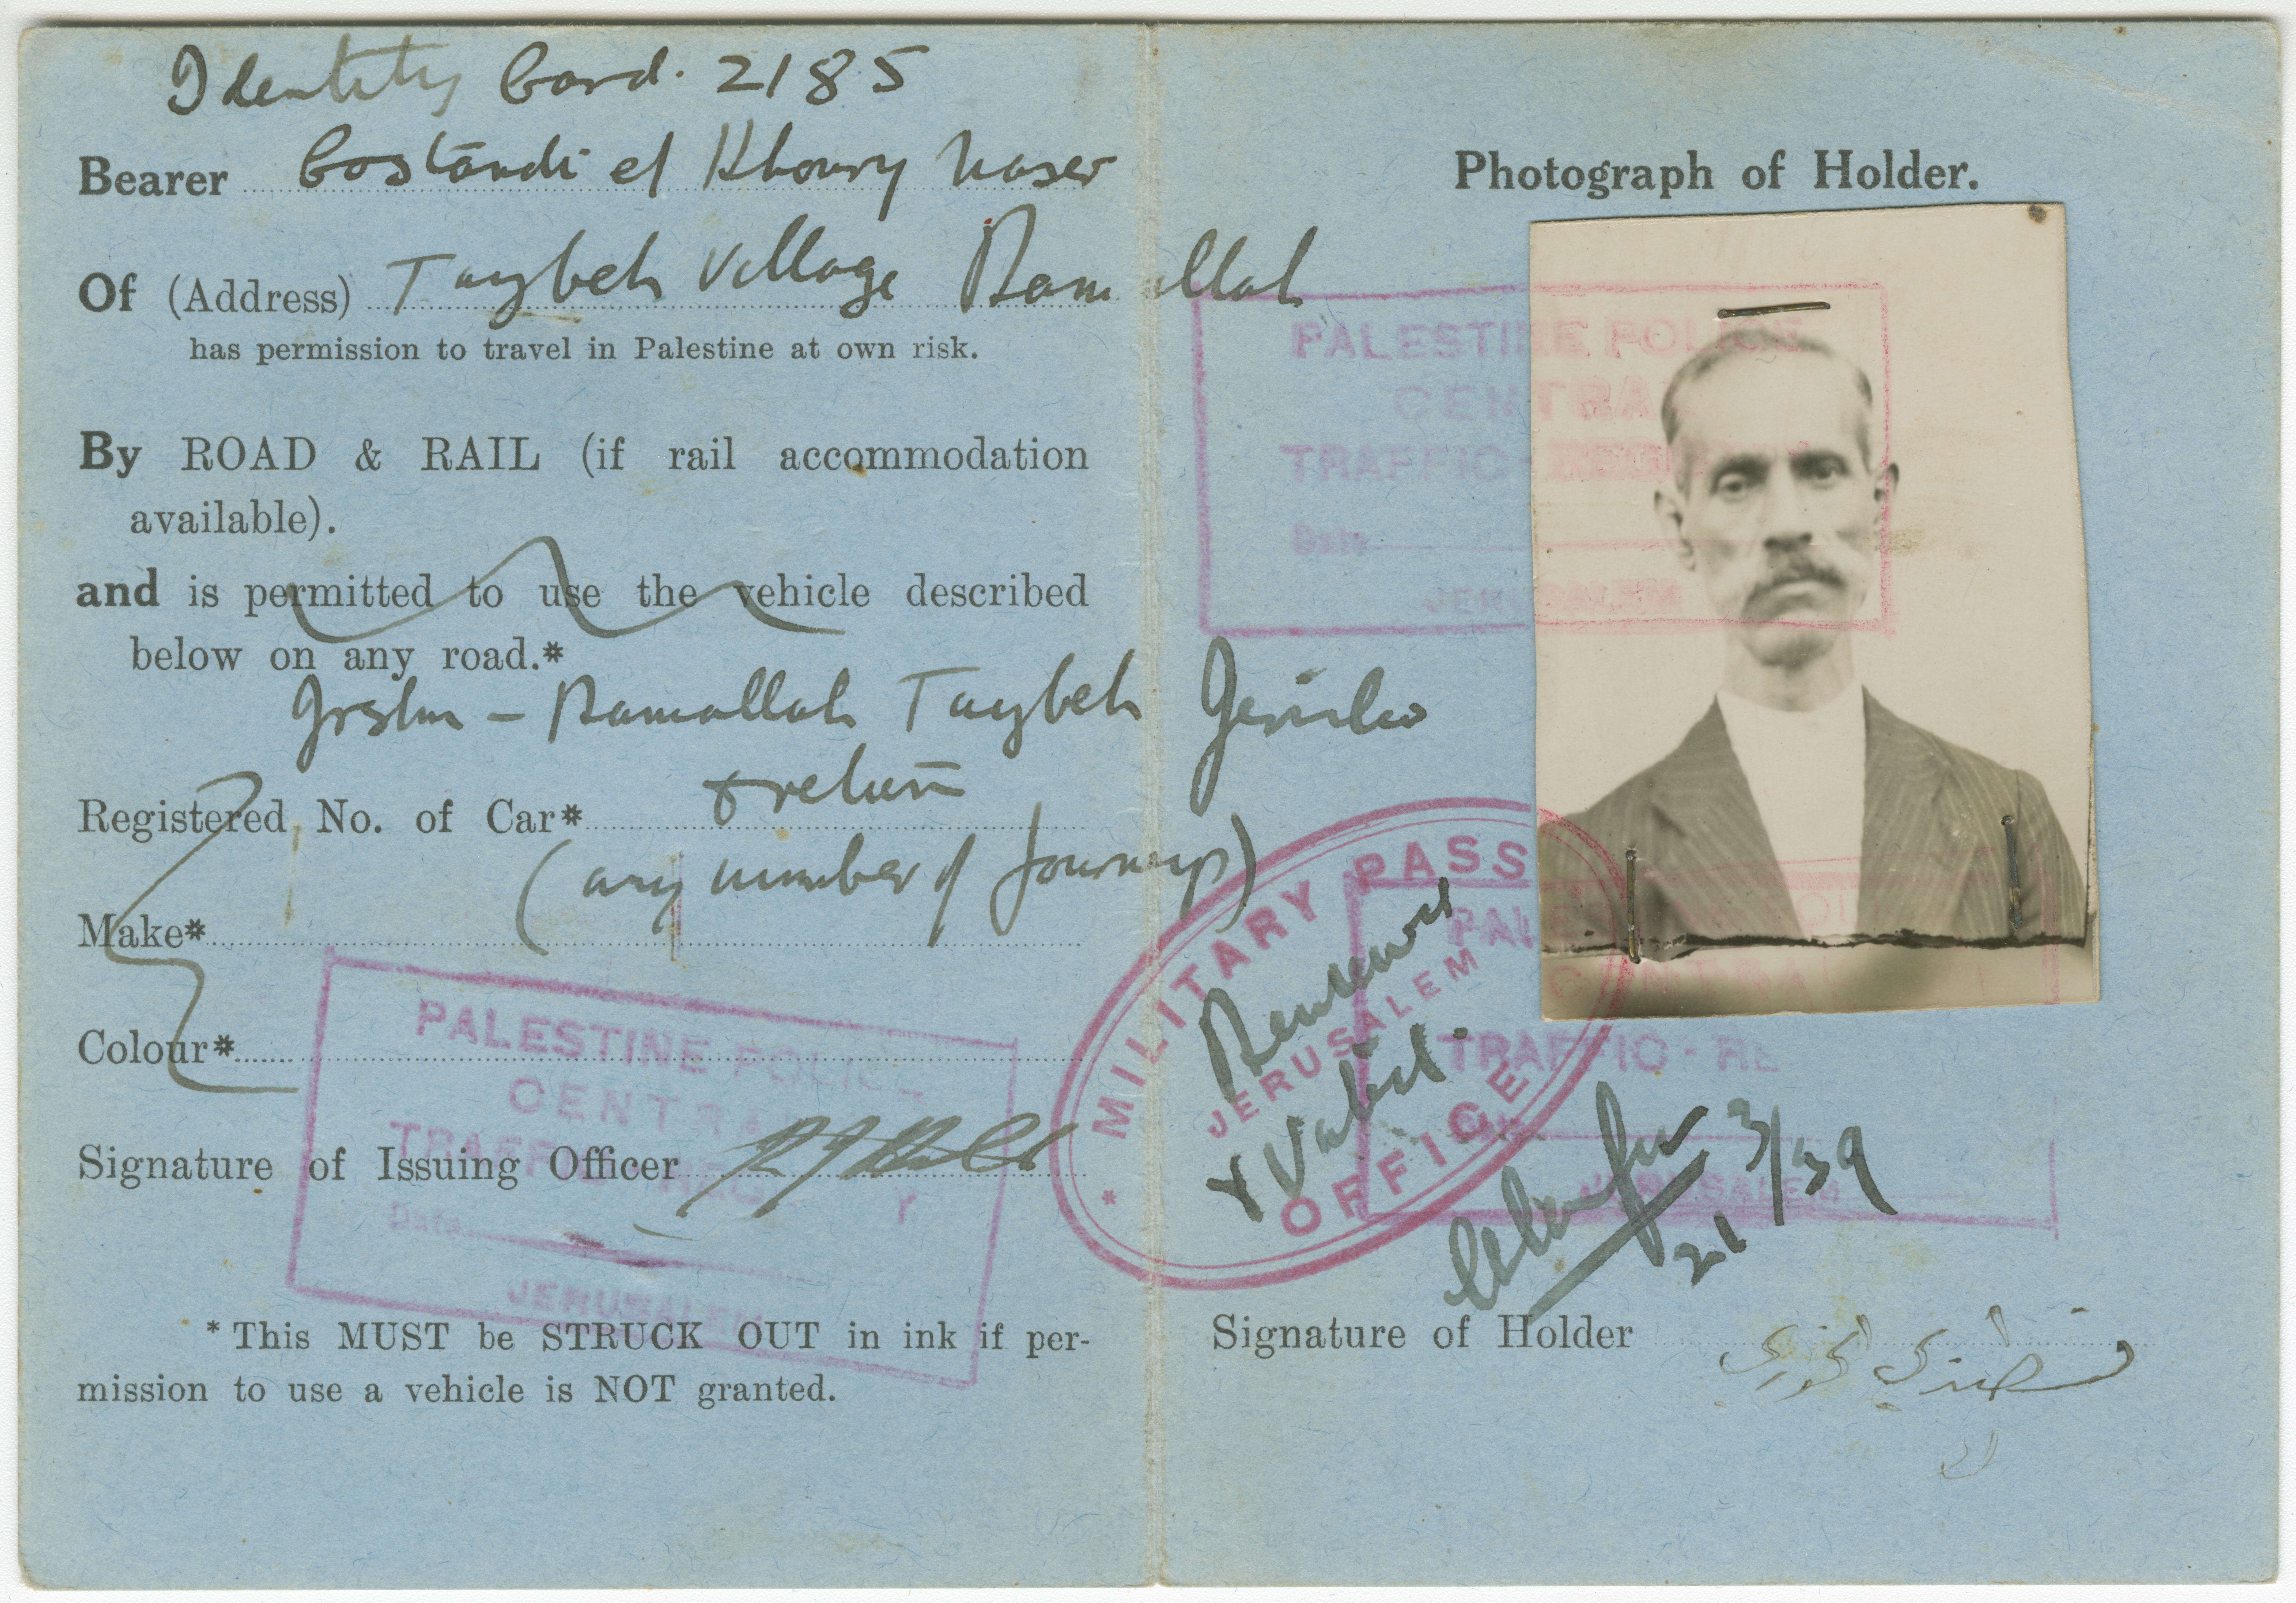 Identity Card. 2185
Bearer Costandi el Khoury Naser
Of (Address) Taybeh Village Ramallah
has permission to travel in Palestine at own risk.
By ROAD & RAIL (if rail accommodation
available).
and is permitted to use the vehicle described
below on any road.*
Jrslm – Ramallah Taybeh Jericho
& return
Registered No. of Car*
(any number of journeys)
Make*
Colour*
Signature of Issuing Officer
PALESTINE POLICE
CENTRAL
TRAFFIC
Date
JERUSALEM
* This MUST be STRUCK OUT in ink if per-
mission to use a vehicle is NOT granted.
Photograph of Holder.
PALESTINE POLICE
CENTRAL
TRAFFIC -
Date
JERUSALEM
MILITARY PASS
JERUSALEM
OFFICE
Renewed
& Valid.
TRAFFIC - RE
JERUSALEM
21/3/39
Signature of Holder قسطندي خوري